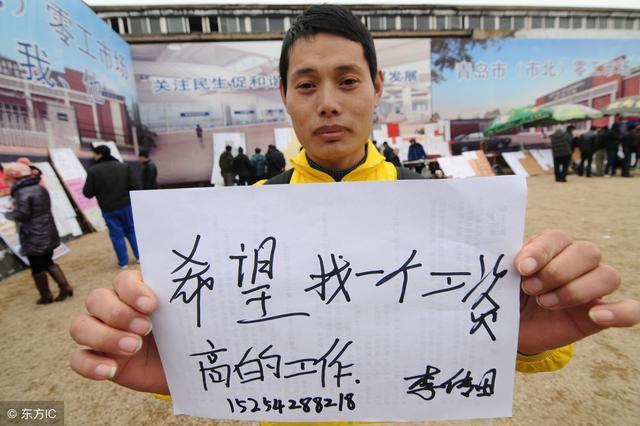 零工市场
我
关注民生促和谐
发展
青岛市（市北）零工
希望找一个工资
高的工作.
15254288218 李传田
©东方IC